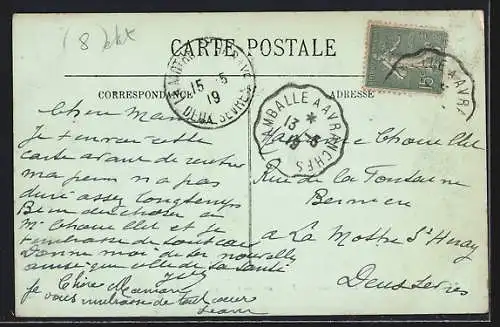 (8) 
CARTE POSTALE
CORRESPONDANCE
ADRESSE
15 - 5
19
DEUX SEVRES
LAMBALLE A AVRANCHES
13
15
Chère Maman
Je t'envoie cette
carte avant de rentrer
ma perm n'a pas
duré assez longtemps
Bien des choses à
Mr Chouillet et je
t'embrasse de tout cœur
Donne moi de tes nouvelles
ainsi que de ta santé
Chère Maman
Je vous embrasse de tout cœur
Madame Chouillet
Rue de la Fontaine
à La Mothe St Héray
Deux Sèvres